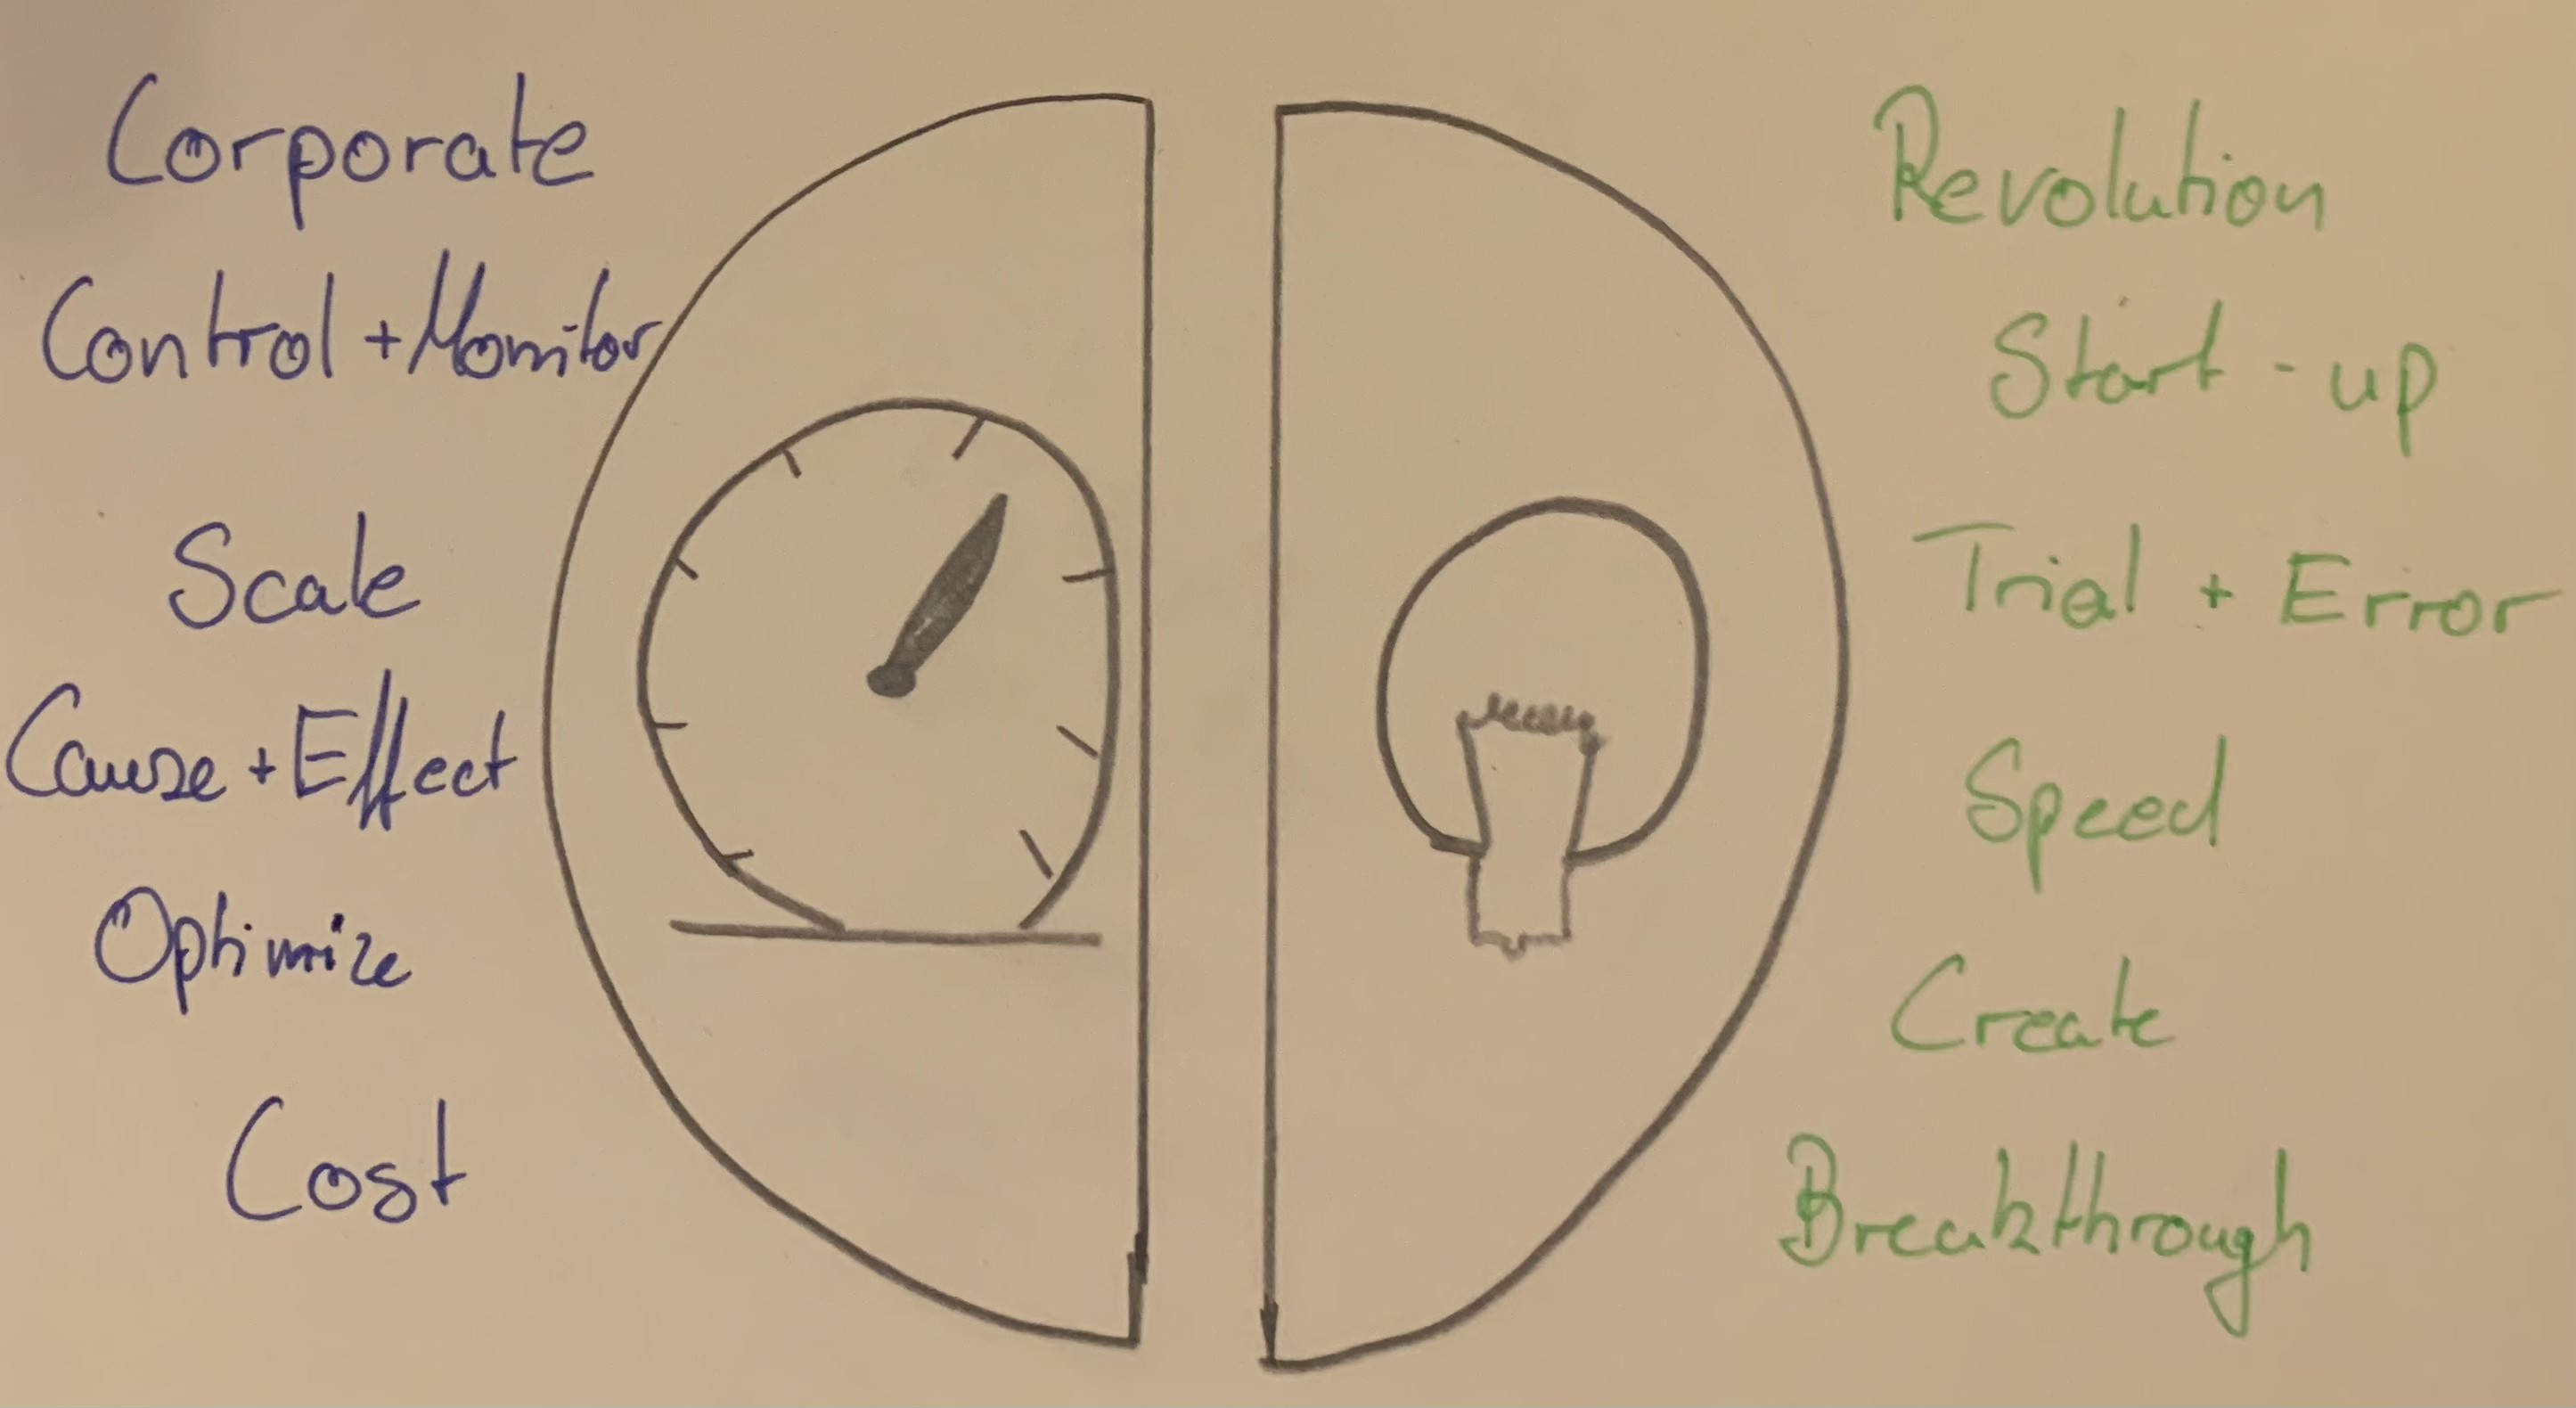 Corporate
Control + Monitor
Scale
Cause + Effect
Optimize
Cost
Revolution
Start-up
Trial + Error
Speed
Create
Breakthrough